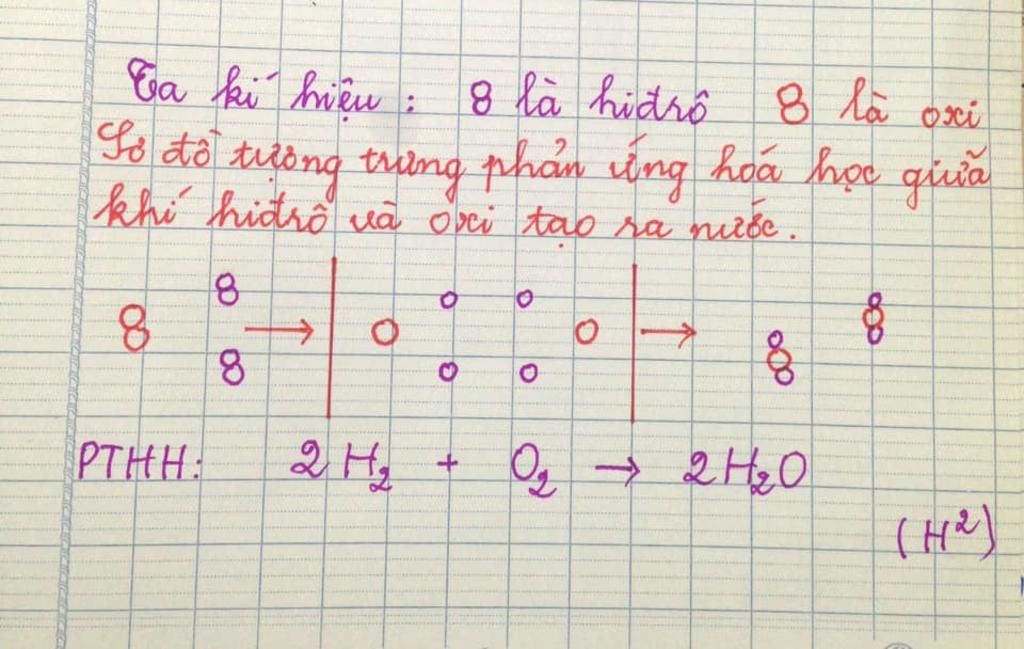 Ta kí hiệu : 8 là hiđrô 8 là oxi
Sơ đồ tượng trưng phản ứng hoá học giữa
khí hiđrô và oxi tạo ra nước.
PTHH: 2H₂ + O₂ → 2H₂O
(H²)